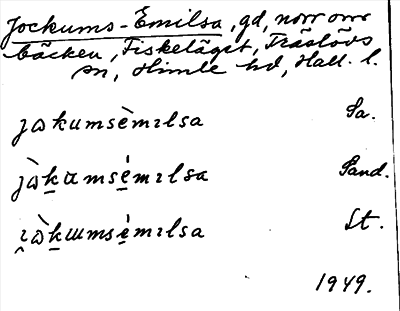 Jockums-Emilsa, gd, norr om
bäcken, Fiskeläget, Träslövs
sn, Himle hd, Hall. l.
ȷɷkumsèmılsa Sa.
ȷɷ̀kɯmsémılsa Sand.
ı̯ɷ̀kɯmsémılsa St.
1949.